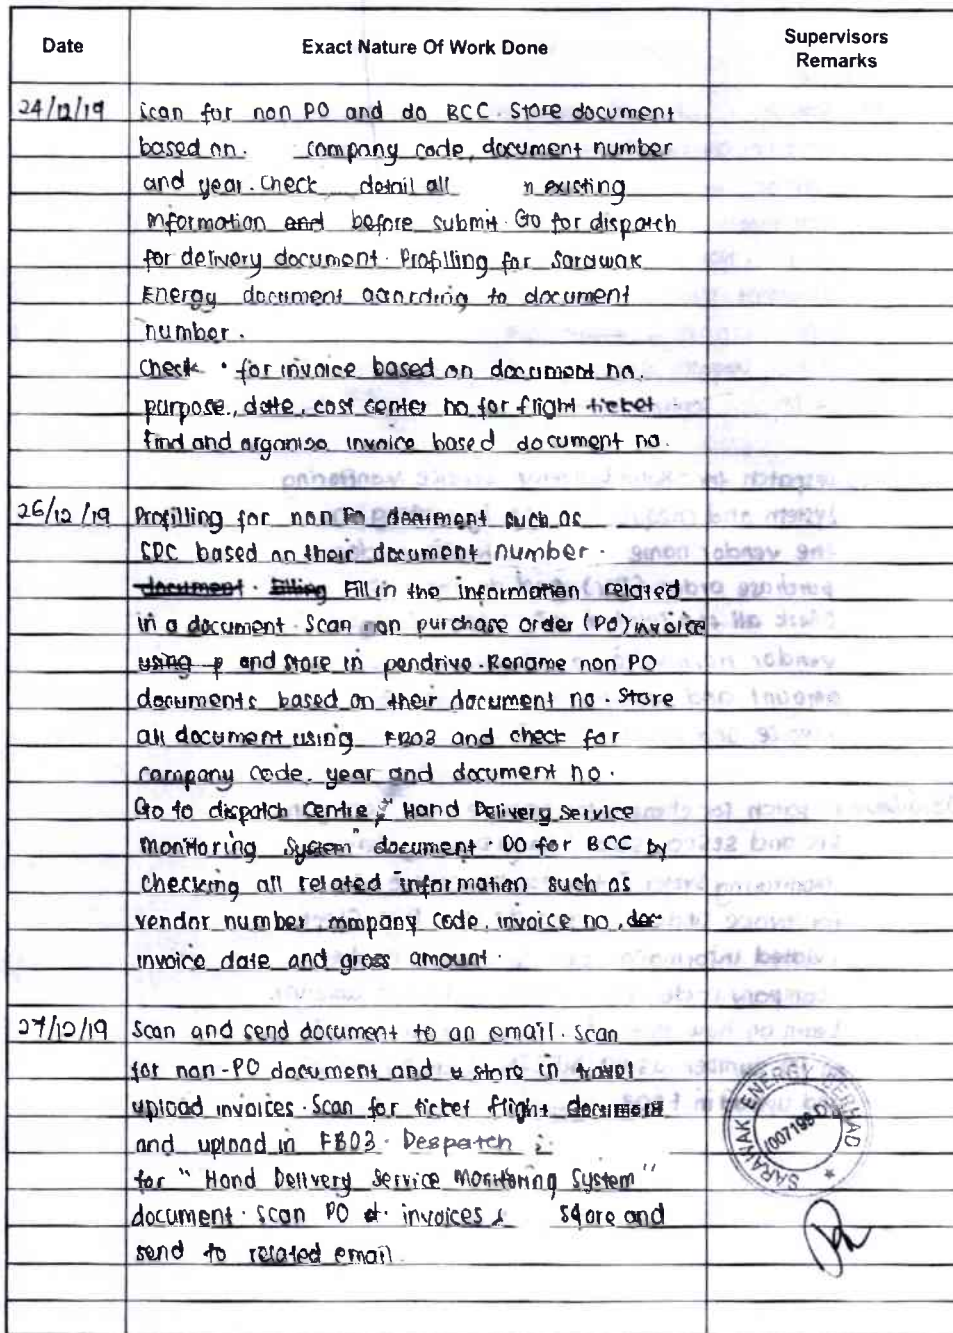 Date
Exact Nature Of Work Done
Supervisors
Remarks
24/12/19
scan for non PO and do BCC. Store document
based on. company code, document number
and year. Check detail all existing
information and before submit. Go for dispatch
for delivery document. Profilling for Sarawak
Energy document according to document
number.
Check for invoice based on document no.
purpose, date, cost center no for flight ticket.
find and organise invoice based document no.
26/12/19
Profilling for non PO document such as
based on their document number.
document. Filling Fill in the information related
in a document. Scan non purchase order (PO) invoice
using p and store in pendrive. Rename non PO
documents based on their document no. Store
all document using FB03 and check for
company code, year and document no.
Go to dispatch centre, "Hand Delivery Service
Monitoring System" document. DO for BCC by
checking all related information such as
vendor number, company code, invoice no, doc
invoice date and gross amount.
27/12/19
Scan and send document to an email. Scan
for non-PO document and store in travel
upload invoices. Scan for ticket flight document
and upload in FB03. Despatch
for "Hand Delivery Service Monitoring System"
document. Scan PO invoices store and
send to related email.
SARAWAK ENERGY BERHAD